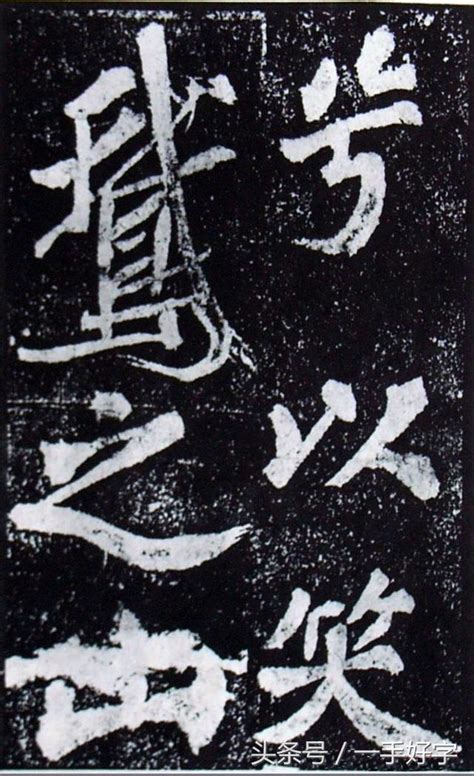 兮以笑
鵞之山
头条号 / 一手好字